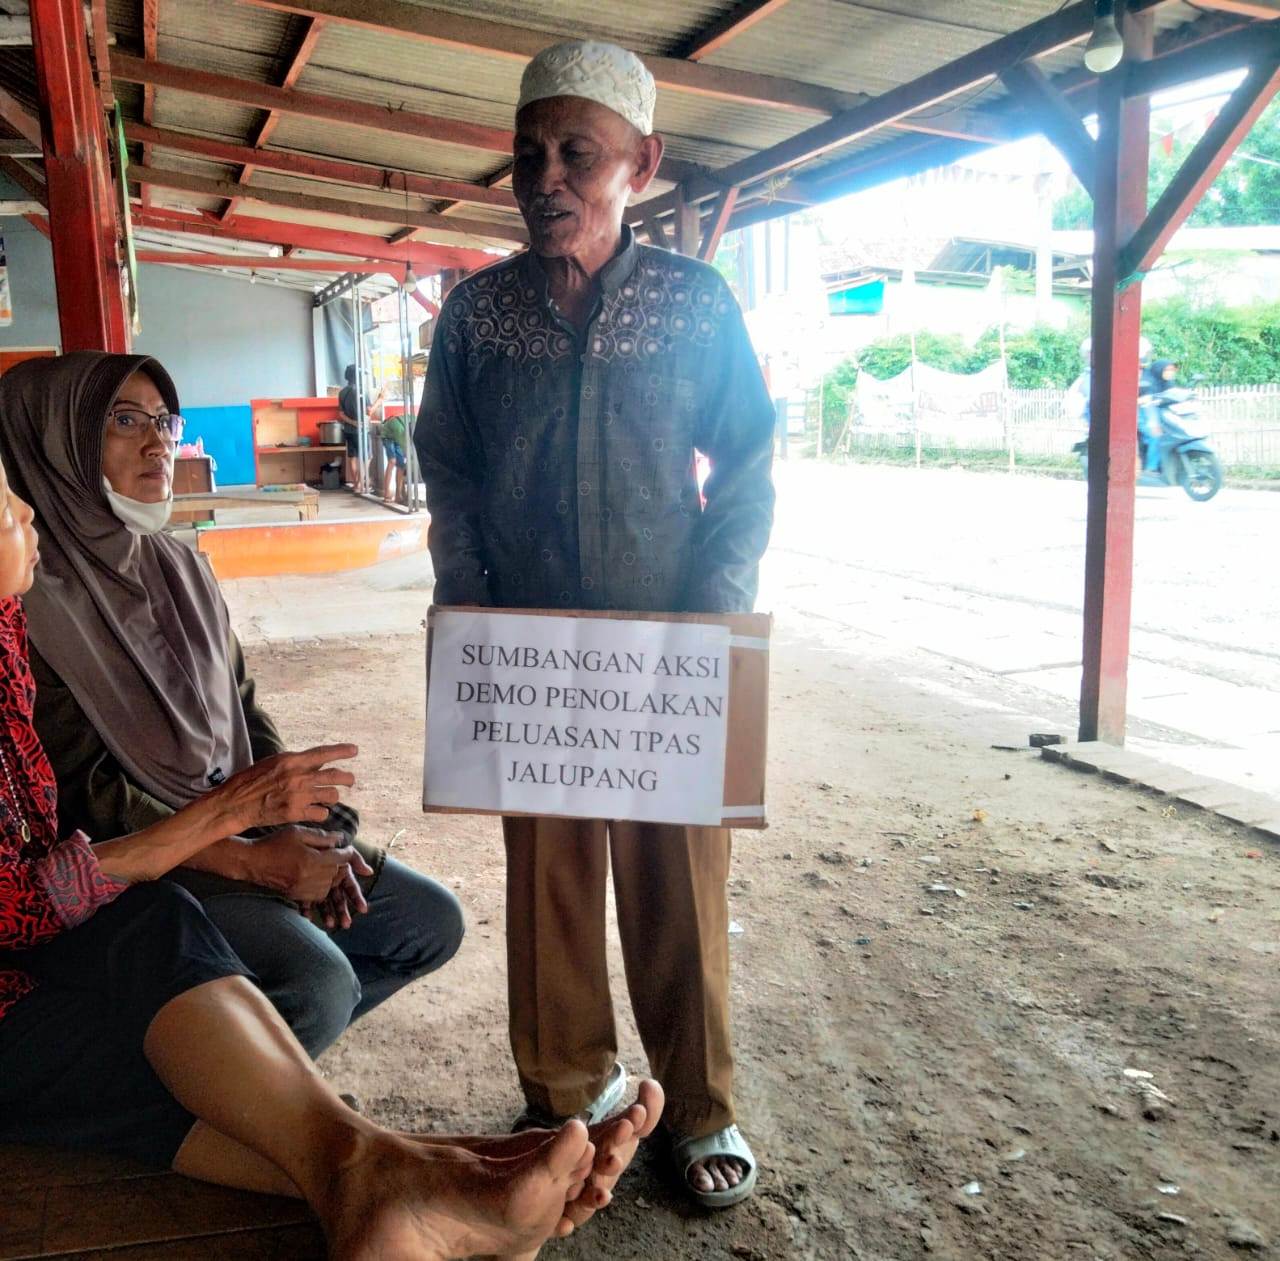 SUMBANGAN AKSI
DEMO PENOLAKAN
PELUASAN TPAS
JALUPANG